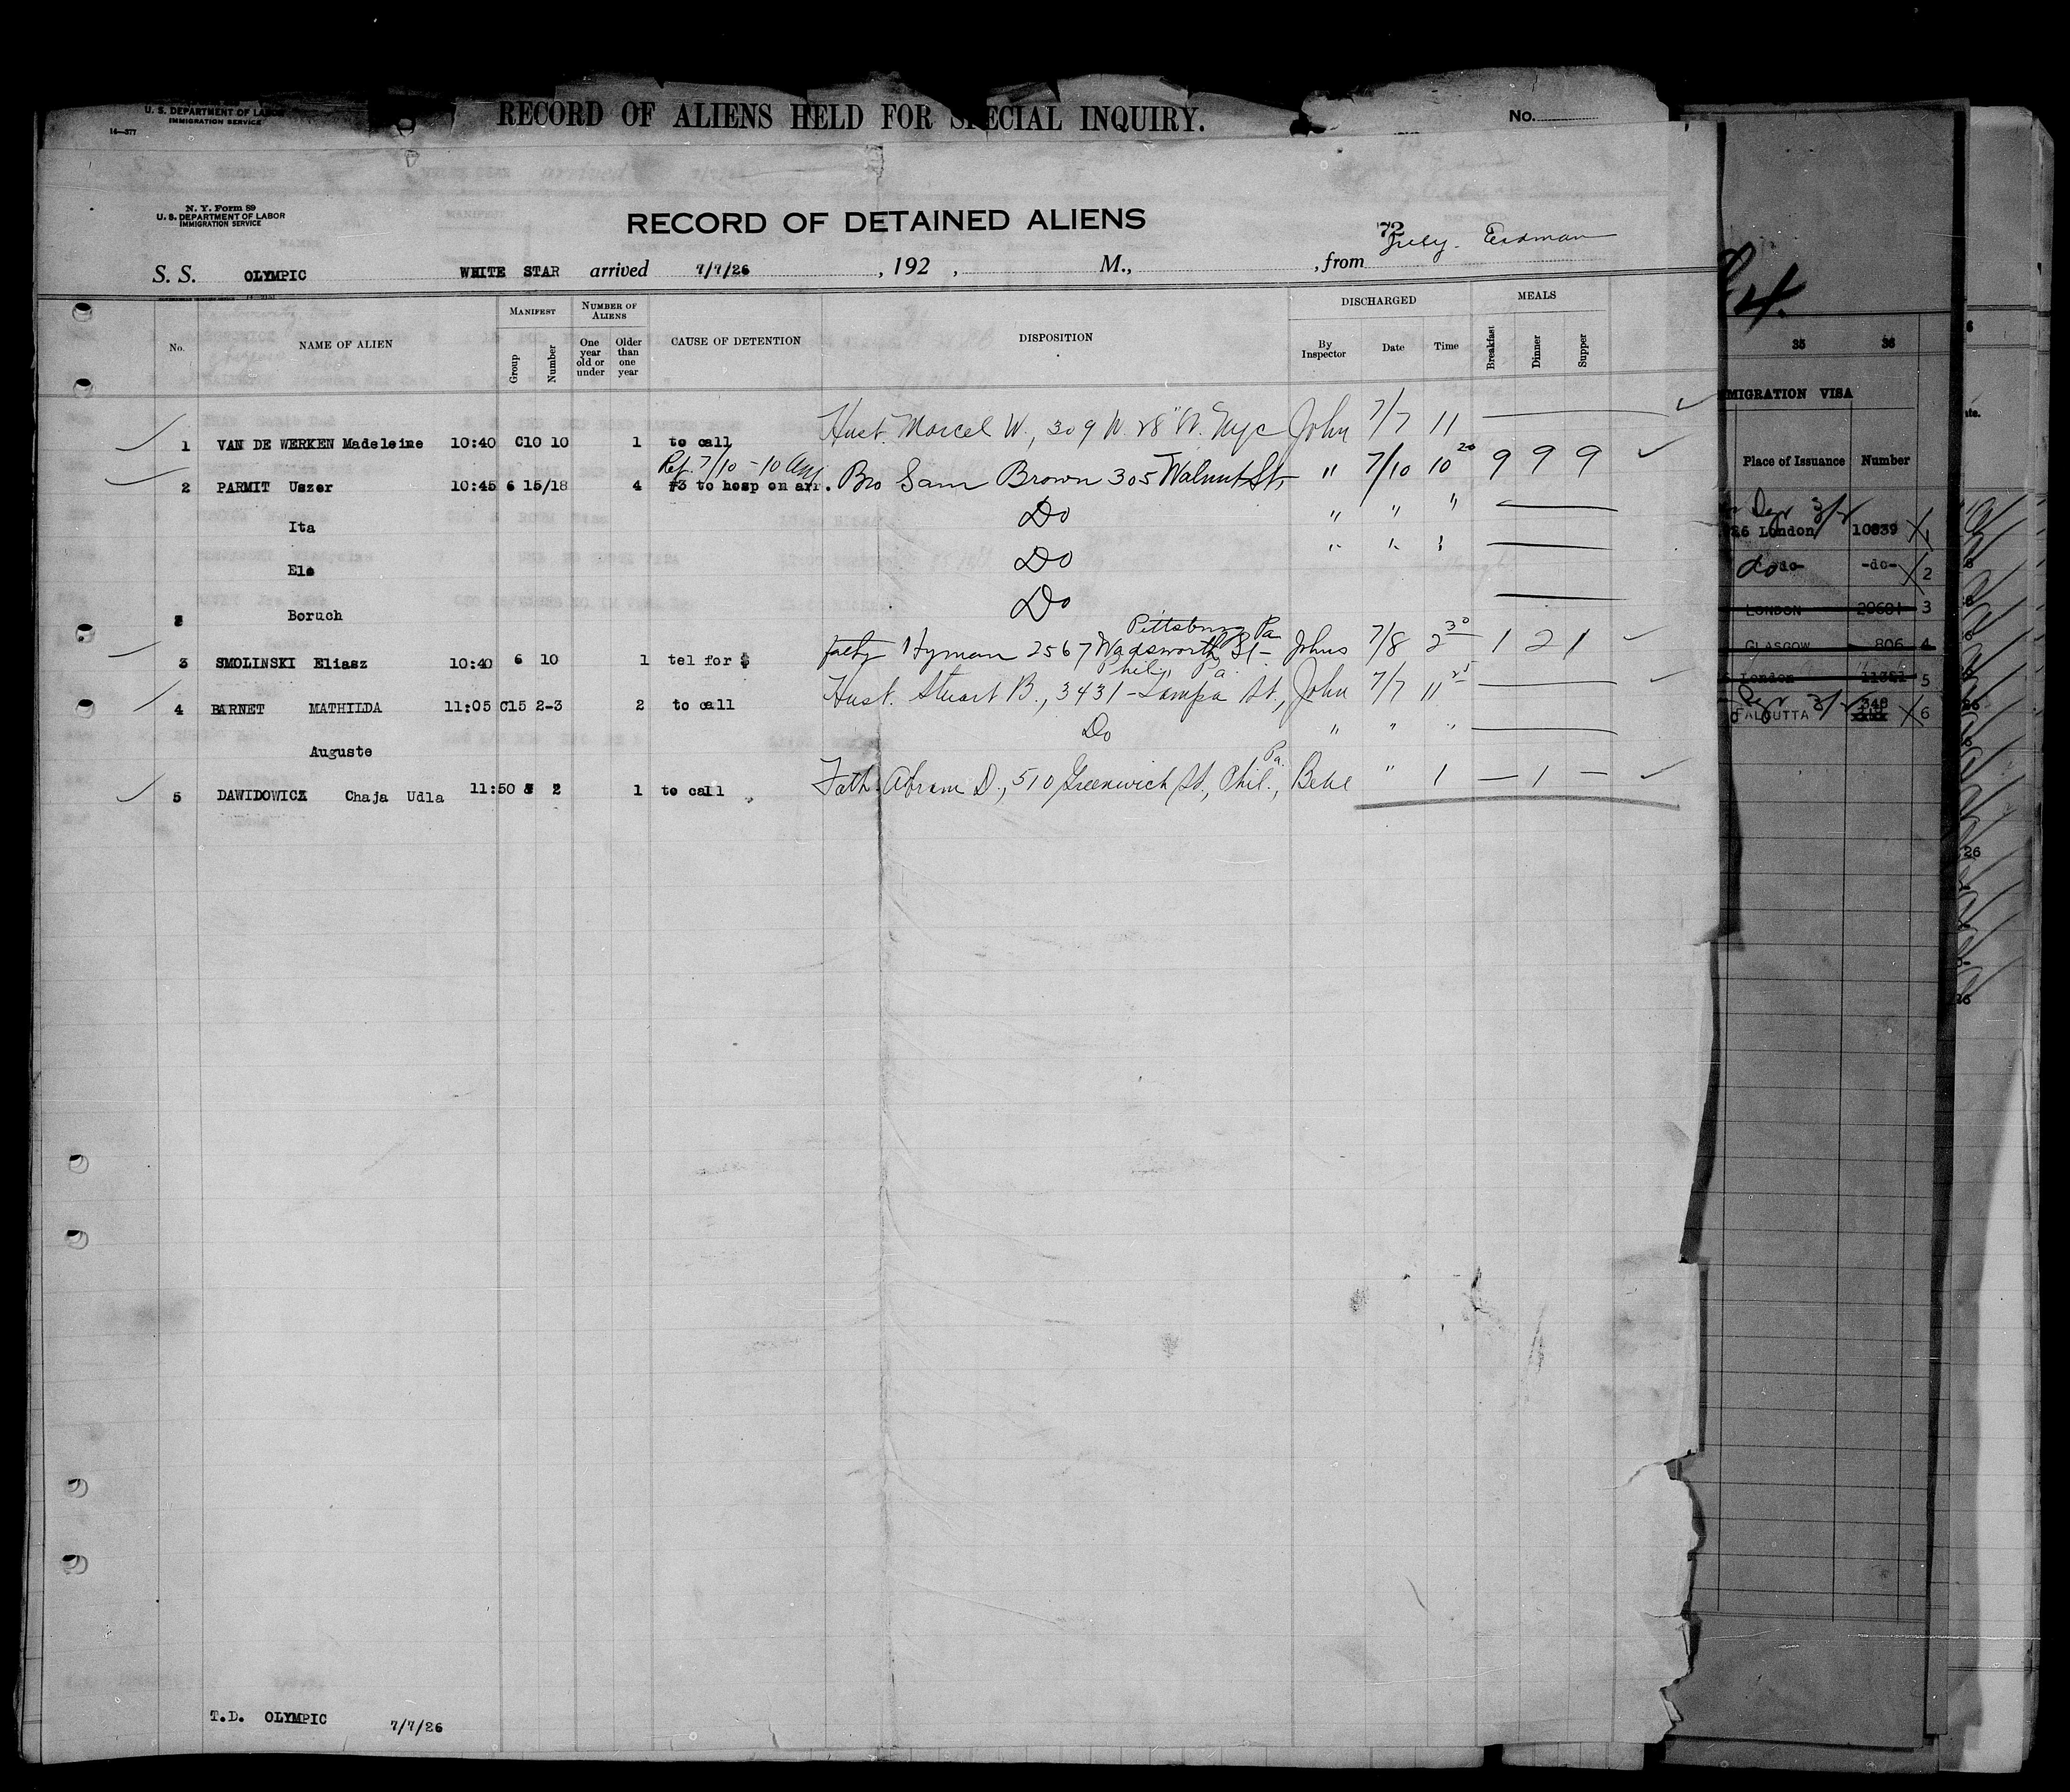 U. S. DEPARTMENT OF LABOR
IMMIGRATION SERVICE
14—377
RECORD OF ALIENS HELD FOR SPECIAL INQUIRY.
No.
N. Y. Form 89
U. S. DEPARTMENT OF LABOR
IMMIGRATION SERVICE
RECORD OF DETAINED ALIENS
72
S. S. OLYMPIC WHITE STAR arrived 7/7/26 , 192 , M., , from
No. NAME OF ALIEN MANIFEST Group Number NUMBER OF ALIENS One year old or under Older than one year CAUSE OF DETENTION DISPOSITION DISCHARGED By Inspector Date Time MEALS Breakfast Dinner Supper
1 VAN DE WERKEN Madeleine 10:40 C10 10 1 to call Husb. Marcel W., 309 W. 28" St. Nyc John 7/7 11
7/10 - 10 Am
2 PARMIT Uszer 10:45 6 15/18 4 #3 to hosp on arr. Bro Sam Brown 305 Walnut St. " 7/10 10 20 9 9 9
Ita Do " " "
Ele Do " " "
Boruch Do
Pittsburg Pa
3 SMOLINSKI Eliasz 10:40 6 10 1 tel for $ Hyman 2567 Wadsworth St - Johns 7/8 2 30 1 2 1
Phil. Pa.
4 BARNET MATHILDA 11:05 C15 2-3 2 to call Husb. Stuart B., 3431 - St., John 7/7 11
Auguste Do " " "
Pa.
5 DAWIDOWICZ Chaja Udla 11:50 2 1 to call Fath. Abram D., 510 Greenwich St., Phil., " 1 — 1 —
T.D. OLYMPIC 7/7/26
4.
35 36
MIGRATION VISA
Place of Issuance Number
26 London 10839 1
do -do- 2
LONDON 20601 3
GLASGOW 806 4
London 5
CALCUTTA 348 6